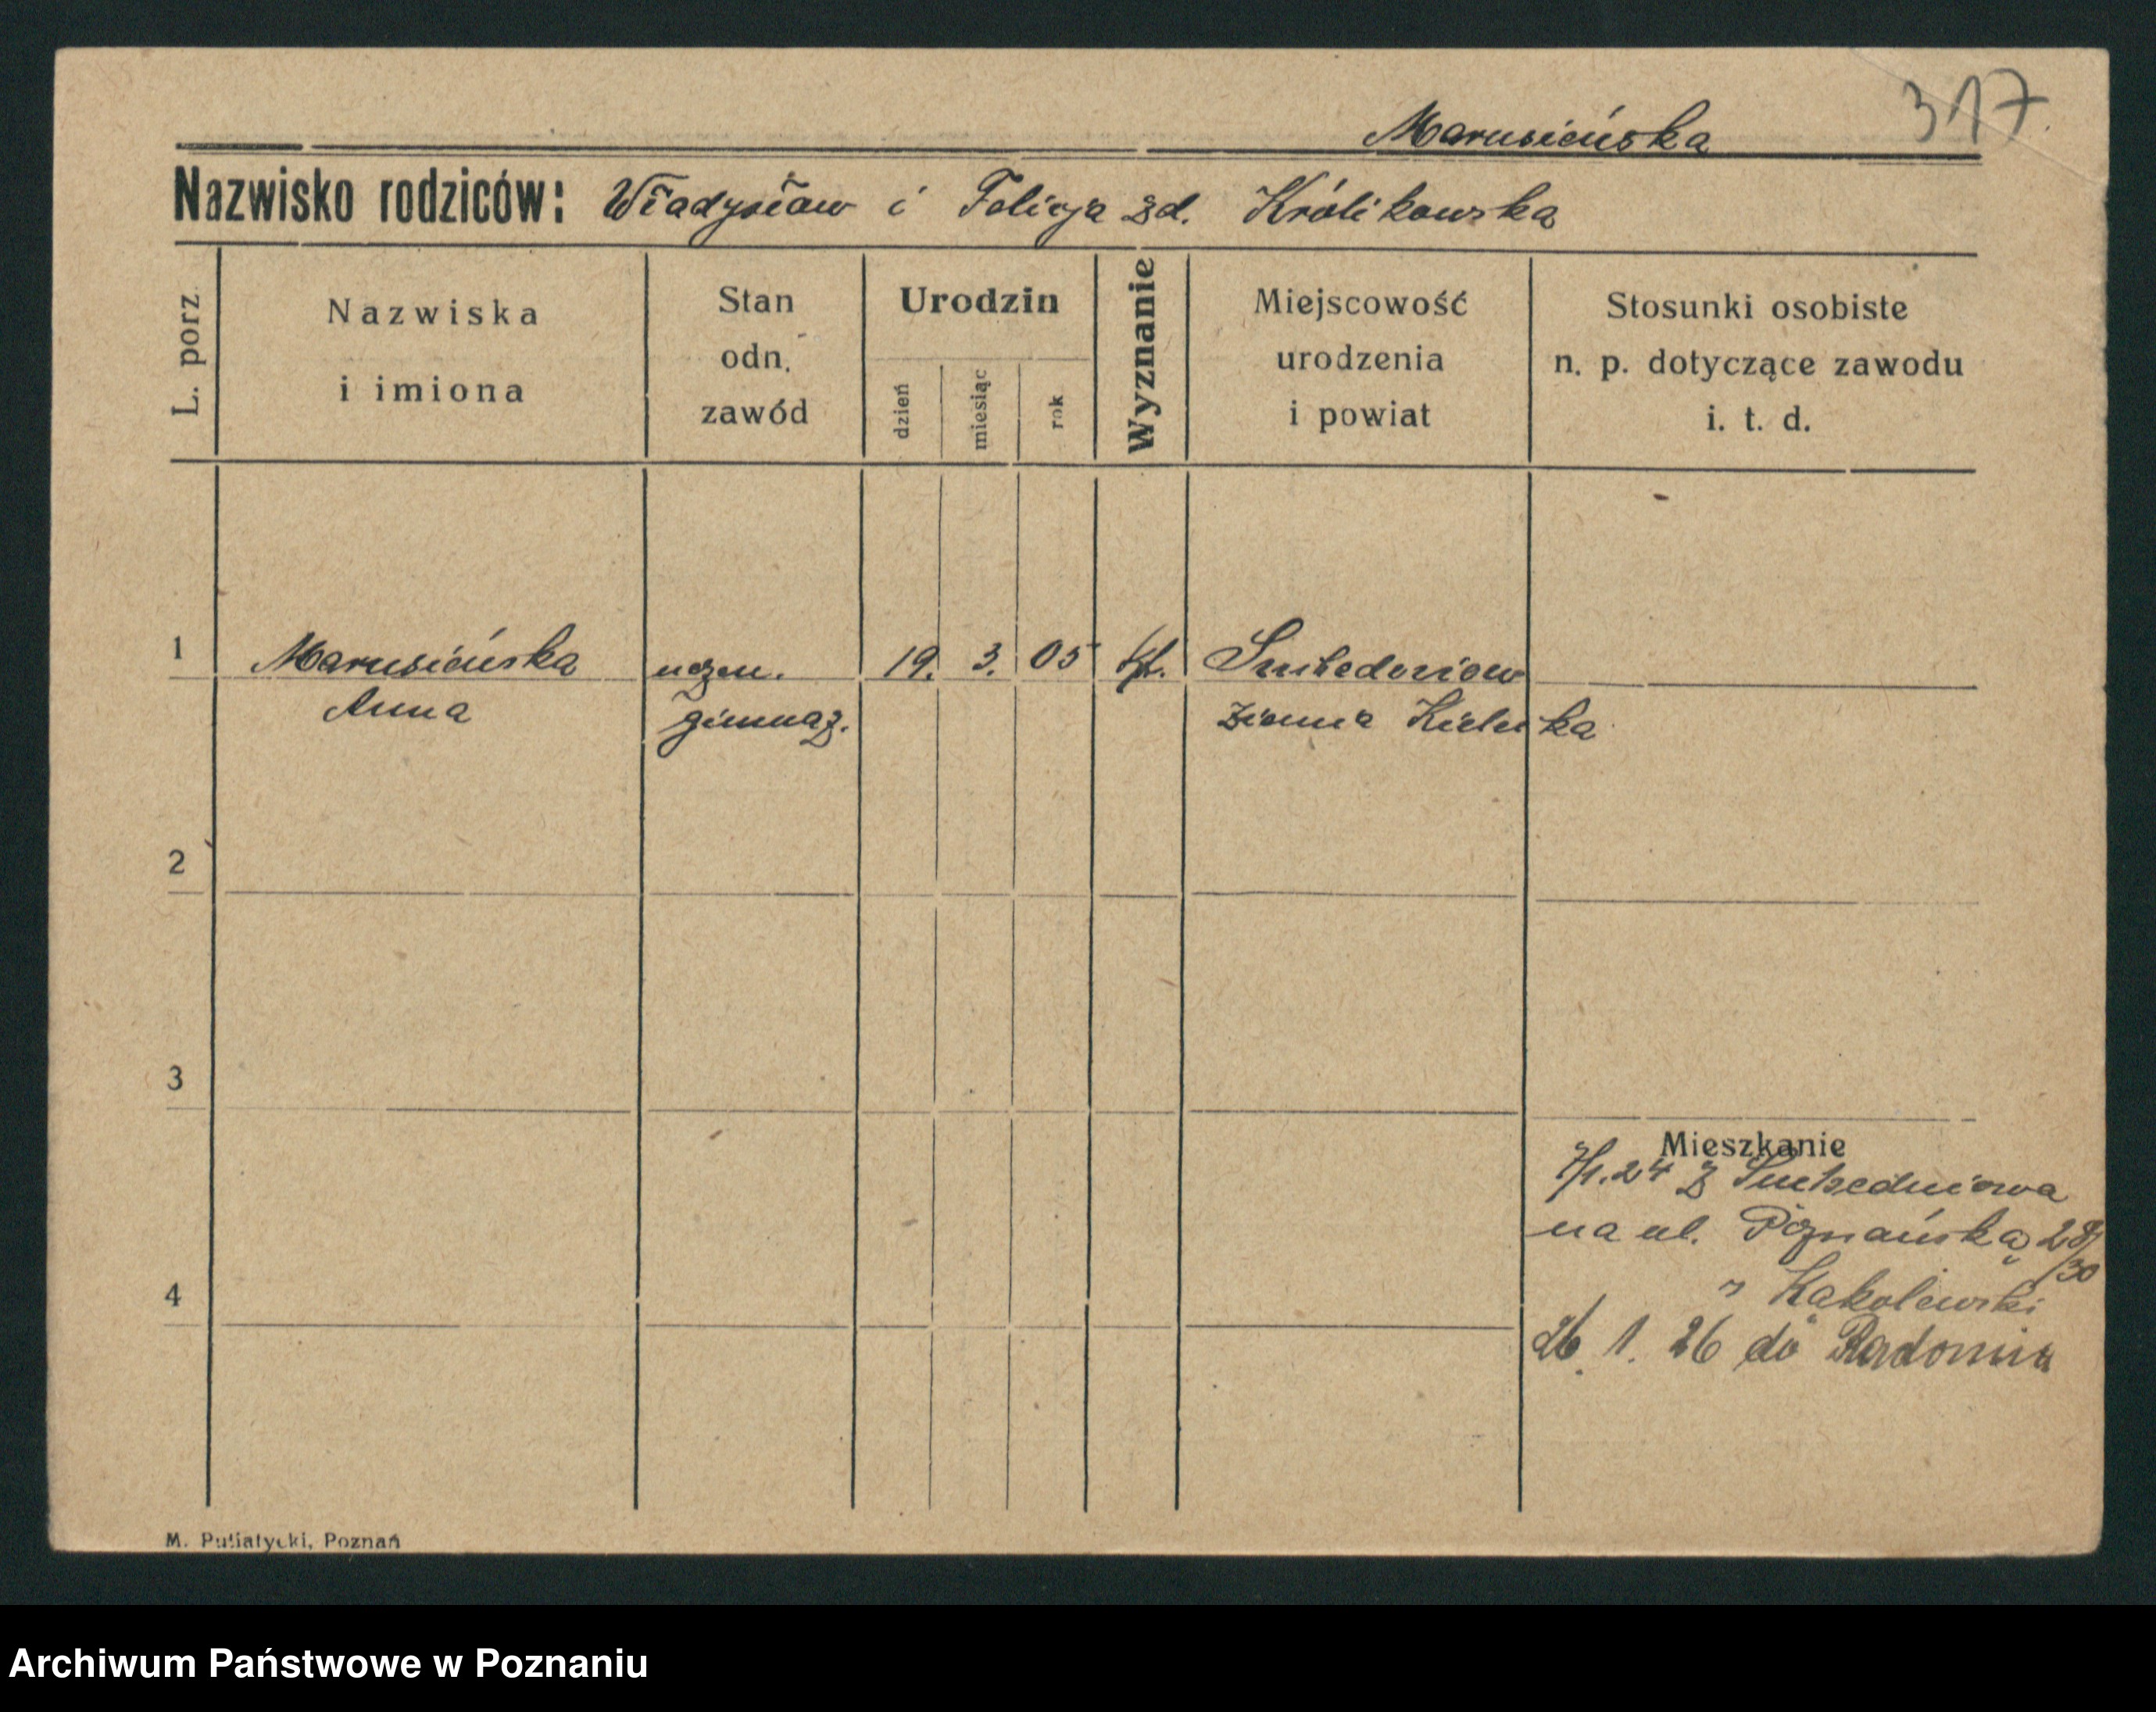 317.
Marusieńska
Nazwisko rodziców: Władysław i Felicja zd. Królikowska
L. porz.
Nazwiska
i imiona
Stan
odn.
zawód
Urodzin
dzień
miesiąc
rok
Wyznanie
Miejscowość
urodzenia
i powiat
Stosunki osobiste
n. p. dotyczące zawodu
i. t. d.
1 Marusieńska uczen. 19. 3. 05 kt.
Anna gimnaz. ziemia Kielecka
2
3
4
Mieszkanie
7/1.24 z
na ul. Poznańską 28/30
" Kąkolewski
26. 1. 26 do Radomia
M. Putiatycki, Poznań
Archiwum Państwowe w Poznaniu